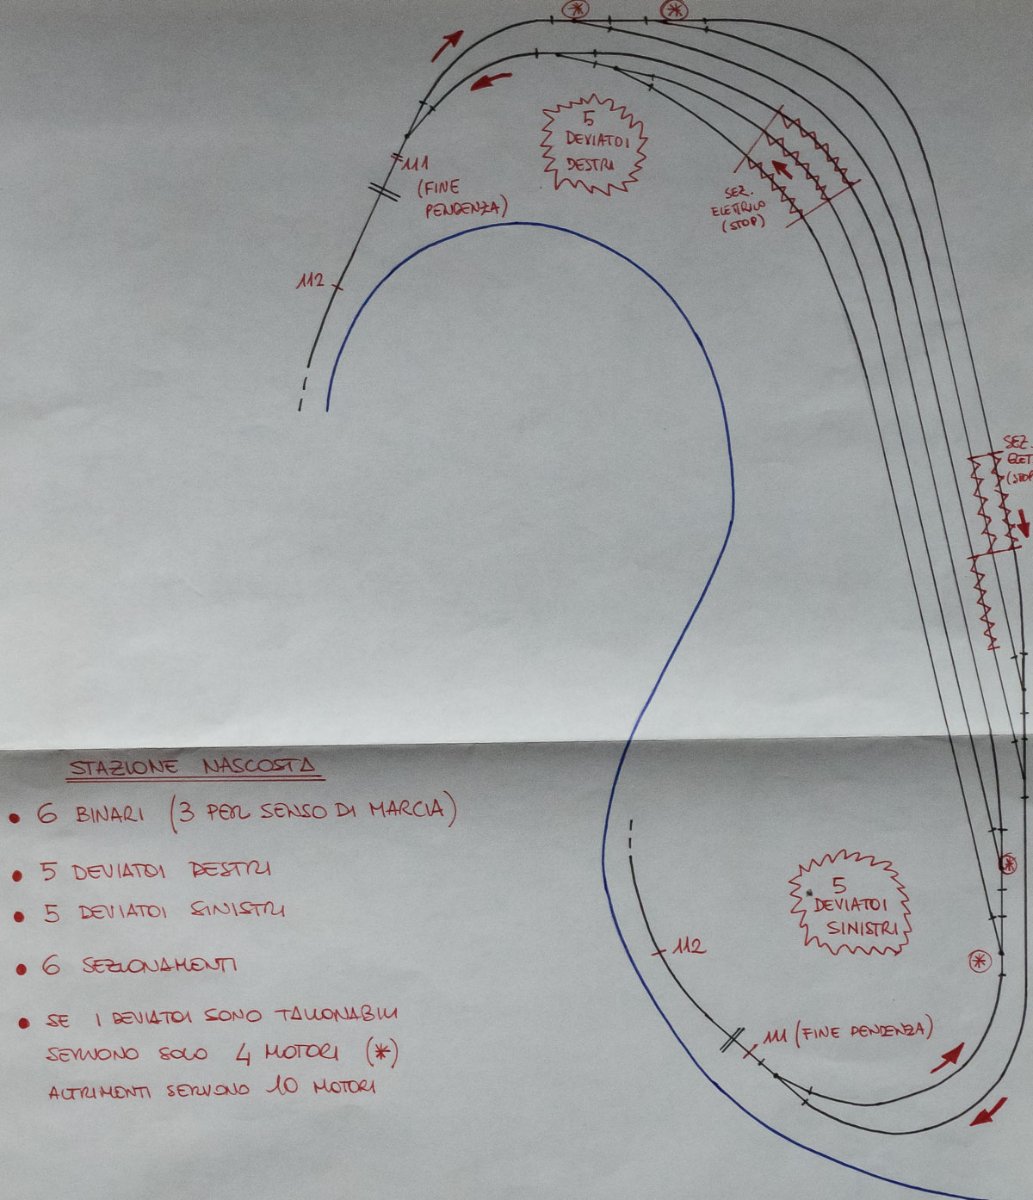 5
DEVIATOI
DESTRI
111
(FINE
PENDENZA)
112
SEZ.
ELETTRICO
(STOP)
SEZ.
ELET
(STOP
STAZIONE NASCOSTA
• 6 BINARI (3 PER SENSO DI MARCIA)
• 5 DEVIATOI DESTRI
• 5 DEVIATOI SINISTRI
• 6 SEZIONAMENTI
• SE I DEVIATOI SONO TALLONABILI
SERVONO SOLO 4 MOTORI (*)
ALTRIMENTI SERVONO 10 MOTORI
5
DEVIATOI
SINISTRI
112
111 (FINE PENDENZA)